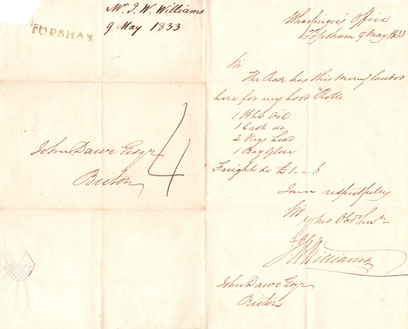 Mr. J. W. Williams
9 May 1833
TOPSHAM
John Daw Esqr
Bicton
4
Wharfinger's Office
Topsham 9 May 1833
Sir
The has this morng landed
here for my Lord Rolle
1 Hhd Oil
1 Cask do
2 Kegs Lead
1 Bag Glue
Freight &c £1 - - 6
I am respectfully
Sir
yr mo. Obdt Servt
J W Williams
John Daw Esqr
Bicton